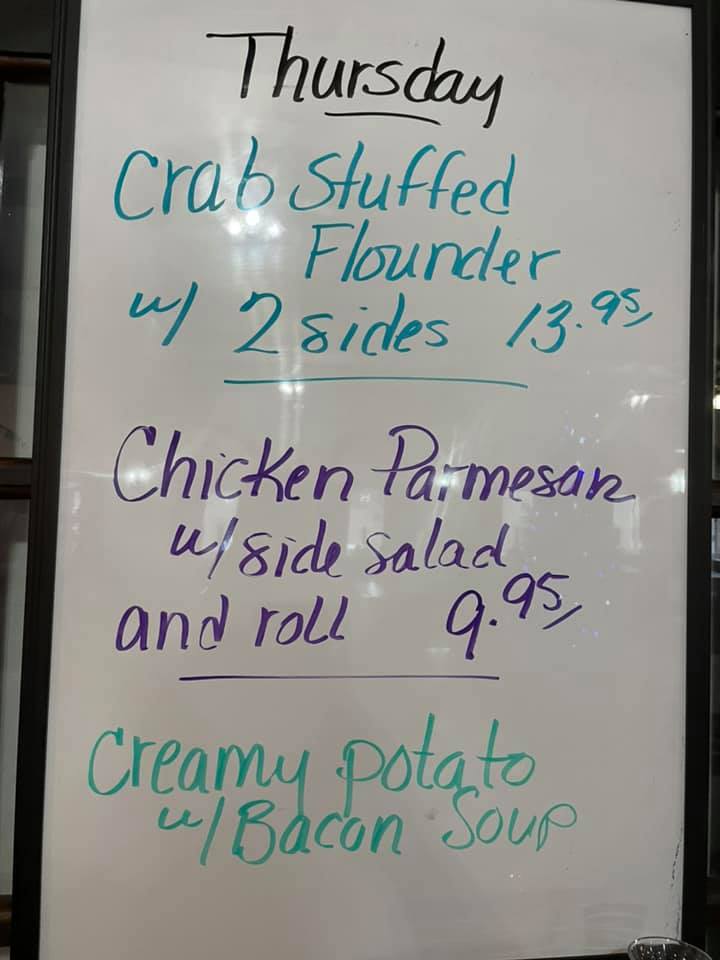 Thursday
Crab Stuffed
Flounder
w/ 2 sides 13.95
Chicken Parmesan
w/ side salad
and roll 9.95
Creamy potato
w/ Bacon Soup